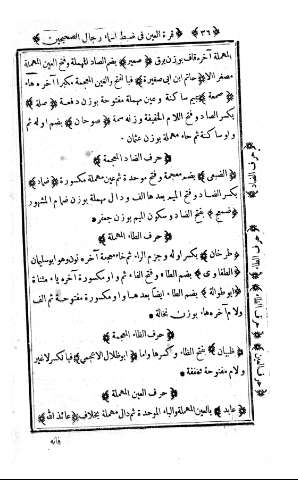 ﴿ ٣٦ ﴾ ﴿ قرة العين فى ضبط اسماء رجال الصحيحين ﴾
المهملة آخره قاف بوزن برق ﴿ صعير ﴾ بضم الصاد المهملة وفتح العين المهملة
مصغر الا ﴿ حاتم ابن ابى صغيرة ﴾ فبا لفتح والغين المعجمة مكبرا آخره هاء
﴿ صمعة ﴾ بميم ساكنة وعين مهملة مفتوحة بوزن دفعة ﴿ صلة ﴾
بكسر الصاد وفتح اللام الخفيفة وزنه سمة ﴿ صوحان ﴾ بضم اوله ثم
واو ساكنة ثم حاء مهملة بوزن عثمان
﴿ حرف الضاد المعجمة ﴾
﴿ الضبعى ﴾ بضم معجمة وفتح موحدة ثم عين مهملة مكسورة ﴿ ضماد ﴾
بكسر الضاد وفتح الميم بعدها الف ودال مهملة بوزن ضمام المشهور
﴿ ضمضم ﴾ بفتح الضاد وسكون الميم بوزن جعفر
﴿ حرف الطاء المهملة ﴾
﴿ طرخان ﴾ بكسر اوله وجزم الراء ثم خاء معجمة آخره نون وهو ابو سليمان
﴿ الطفاوى ﴾ بضم الطاء وفتح الفاء ثم واو مكسورة آخره ياء مثناة
﴿ ابو طوالة ﴾ بضم الطاء ايضا بعدها واو مكسورة مفتوحة ثم الف
ولام آخرها هاء بوزن نخالة
﴿ حرف الظاء المعجمة ﴾
﴿ ظبيان ﴾ بفتح الظاء وكسرها واما ﴿ ابو ظلال الاعجمى ﴾ فبا لكسر لا غير
ولام مفتوحة مخففة
﴿ حرف العين المهملة ﴾
﴿ عابد ﴾ بالعين المهملة والباء الموحدة ثم دال مهملة بخلاف ﴿ عائذ الله ﴾
فانه
﴿ حرف الضاد ﴾
﴿ حرف الطاء ﴾